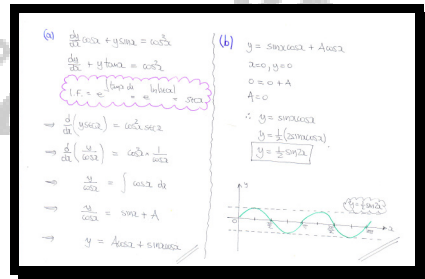 (a)
dy/dx cosx + y sinx = cos³x
dy/dx + y tanx = cos²x
I.F. = e^∫tanx dx = e^ln|secx| = secx
⇒ d/dx (y secx) = cos²x secx
⇒ d/dx (y/cosx) = cos²x × 1/cosx
⇒ y/cosx = ∫ cosx dx
⇒ y/cosx = sinx + A
⇒ y = Acosx + sinxcosx
(b)
y = sinxcosx + Acosx
x=0, y=0
0 = 0 + A
A=0
∴ y = sinxcosx
y = ½(2sinxcosx)
y = ½ sin2x
y
y = ½ sin2x
0
x